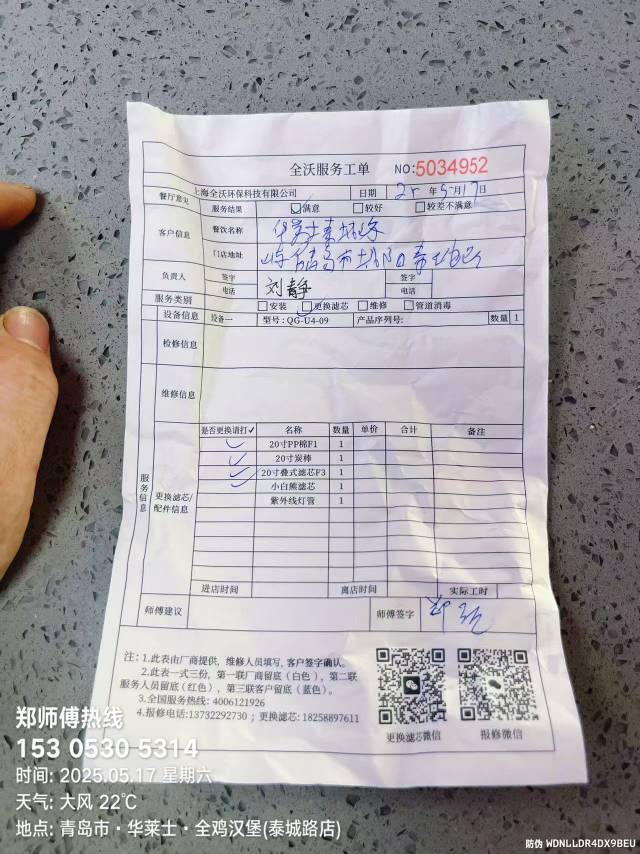 全沃服务工单 NO:5034952
餐厅意见 上海全沃环保科技有限公司 日期 25 年 5 月 17 日
服务结果 满意 较好 较差不满意
客户信息 餐饮名称
门店地址
负责人 签字 刘静 签字
电话 电话
服务类别 安装 更换滤芯 维修 管道消毒
设备信息 设备一 型号: QG-U4-09 产品序列号: 数量 1
检修信息
维修信息
服务信息
更换滤芯/配件信息
是否更换请打✓ 名称 数量 单价 合计 备注
✓ 20寸PP棉F1 1
✓ 20寸炭棒 1
✓ 20寸叠式滤芯F3 1
小白熊滤芯 1
紫外线灯管 1
进店时间 离店时间 实际工时
师傅建议 师傅签字
注: 1.此表由厂商提供, 维修人员填写, 客户签字确认。
2.此表一式三份, 第一联厂商留底(白色), 第二联
服务人员留底(红色), 第三联客户留底(蓝色)。
3.全国服务热线: 4006121926
4.报修电话:13732292730 ; 更换滤芯: 18258897611
更换滤芯微信 报修微信
郑师傅热线
153 0530 5314
时间: 2025.05.17 星期六
天气: 大风 22℃
地点: 青岛市·华莱士·全鸡汉堡(泰城路店)
防伪 WDNLLDR4DX9BEU